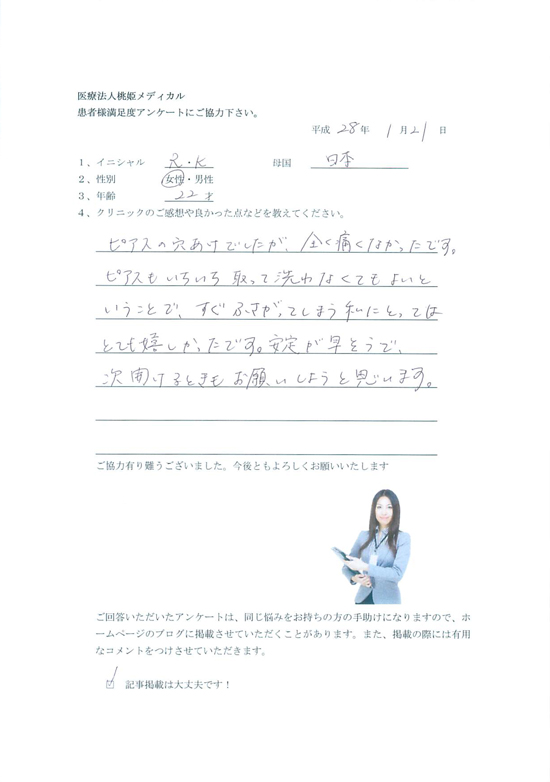 医療法人桃姫メディカル
患者様満足度アンケートにご協力下さい。
平成 28年 1月21日
1、イニシャル R・K 母国 日本
2、性別 女性・男性
3、年齢 22才
4、クリニックのご感想や良かった点などを教えてください。
ピアスの穴あけでしたが、全く痛くなかったです。
ピアスもいちいち取って洗わなくてもよいと
いうことで、すぐふさがってしまう私にとっては
とても嬉しかったです。安定が早そうで、
次開けるときもお願いしようと思います。
ご協力有り難うございました。今後ともよろしくお願いいたします
ご回答いただいたアンケートは、同じ悩みをお持ちの方の手助けになりますので、ホ
ームページのブログに掲載させていただくことがあります。また、掲載の際には有用
なコメントをつけさせていただきます。
☑ 記事掲載は大丈夫です！